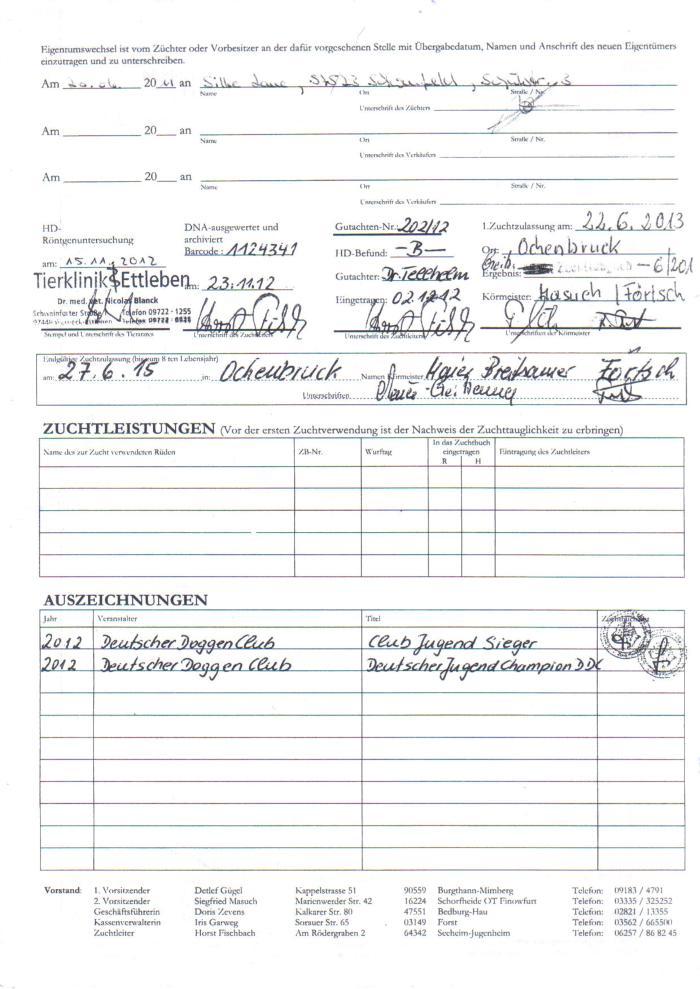 Eigentumswechsel ist vom Züchter oder Vorbesitzer an der dafür vorgesehenen Stelle mit Übergabedatum, Namen und Anschrift des neuen Eigentümers
einzutragen und zu unterschreiben.
Am 20.06. 2011 an Silke
Name Ort Straße / Nr.
Unterschrift des Züchters
Am 20 an
Name Ort Straße / Nr.
Unterschrift des Verkäufers
Am 20 an
Name Ort Straße / Nr.
Unterschrift des Verkäufers
HD- DNA-ausgewertet und Gutachten-Nr.: 202/12 1.Zuchtzulassung am: 22.6.2013
Röntgenuntersuchung archiviert
Barcode: 1124341 HD-Befund: -B- Ort: Ochenbruck
am: 15.11.2012 Ergebnis: - 6/201
Tierklinik Ettleben am: 23.11.12 Gutachter: Dr. Tellhelm
Dr. med. vet. Nicolas Blanck Eingetragen: 02.12.12 Körmeister: Masuch / Förtsch
Schweinfurter Straße Telefon 09722 - 1255
Telefax 09722 - 6636
Stempel und Unterschrift des Tierarztes Unterschrift des Zuchtleiters Unterschrift des Zuchtleiters Unterschriften der Körmeister
Endgültige Zuchtzulassung (bis zum 8 ten Lebensjahr)
am: 27.6.15 in: Ochenbruck Namen Körmeister Breitsamer Förtsch
Unterschriften
ZUCHTLEISTUNGEN (Vor der ersten Zuchtverwendung ist der Nachweis der Zuchttauglichkeit zu erbringen)
Name des zur Zucht verwendeten Rüden ZB-Nr. Wurftag In das Zuchtbuch eingetragen Eintragung des Zuchtleiters
R H
AUSZEICHNUNGEN
Jahr Veranstalter Titel
2012 Deutscher Doggen Club Club Jugend Sieger
2012 Deutscher Doggen Club Deutscher Jugend Champion DDC
Vorstand: 1. Vorsitzender Detlef Gügel Kappelstrasse 51 90559 Burgthann-Mimberg Telefon: 09183 / 4791
2. Vorsitzender Siegfried Masuch Marienwerder Str. 42 16224 Schorfheide OT Finowfurt Telefon: 03335 / 325252
Geschäftsführerin Doris Zevens Kalkarer Str. 80 47551 Bedburg-Hau Telefon: 02821 / 13355
Kassenverwalterin Iris Garweg Sorauer Str. 65 03149 Forst Telefon: 03562 / 665500
Zuchtleiter Horst Fischbach Am Rödergraben 2 64342 Seeheim-Jugenheim Telefon: 06257 / 86 82 45